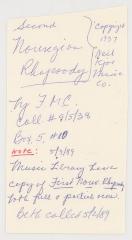 Second
Norwegian
Rhapsody
Copyright
1937
Neil
Kjos
Music
Co.
Ny F.M.C.
Call # 4/5/39
Box 5, #10
NOTE: 5/9/89
Music Library
copy of First Norw Rhapsody
both full & partial score
Beth called 5/2/89